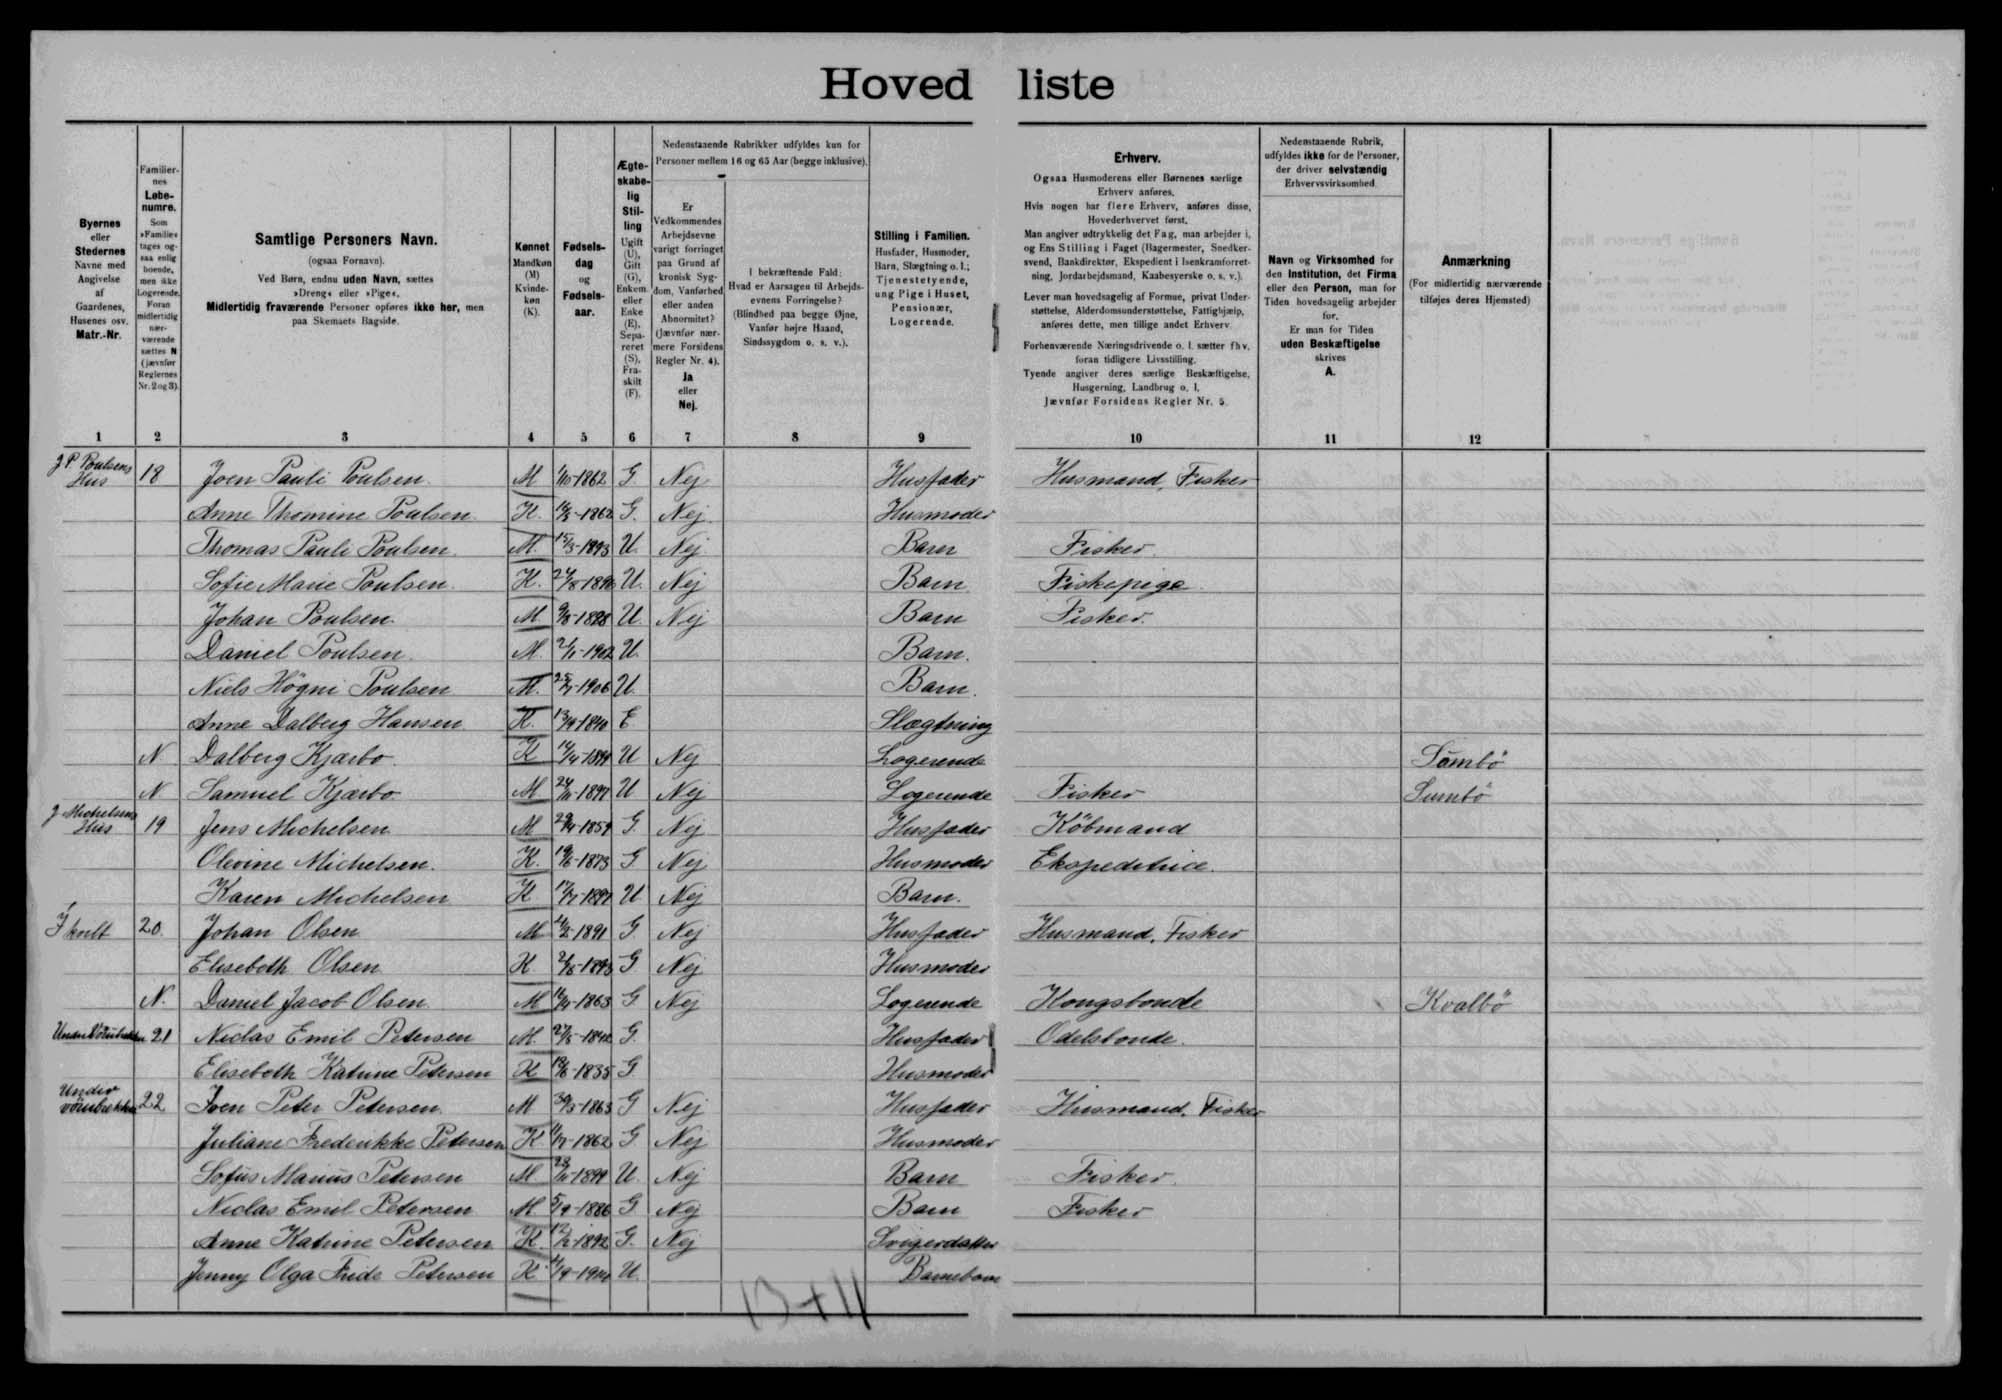 Hovedliste
Byernes eller Stedernes Navne med Angivelse af Gaardenes, Husenes osv. Matr.-Nr.
Familiernes Løbenumre. Som »Familie« tages ogsaa enlig boende, men ikke Logerende. Foran midlertidig nærværende sættes N (jævnfør Reglernes Nr. 2 og 3).
Samtlige Personers Navn. (ogsaa Fornavn). Ved Børn, endnu uden Navn, sættes »Dreng« eller »Pige«. Midlertidig fraværende Personer opføres ikke her, men paa Skemaets Bagside.
Kønnet Mandkøn (M) Kvindekøn (K).
Fødselsdag og Fødselsaar.
Ægteskabelig Stilling Ugift (U), Gift (G), Enkem. eller Enke (E), Separeret (S), Fraskilt (F).
Nedenstaaende Rubrikker udfyldes kun for Personer mellem 16 og 65 Aar (begge inklusive).
Er Vedkommendes Arbejdsevne varigt forringet paa Grund af kronisk Sygdom, Vanførhed eller anden Abnormitet? (Jævnfør nærmere Forsidens Regler Nr. 4). Ja eller Nej.
I bekræftende Fald: Hvad er Aarsagen til Arbejdsevnens Forringelse? (Blindhed paa begge Øjne, Vanfør højre Haand, Sindssygdom o. s. v.).
Stilling i Familien. Husfader, Husmoder, Barn, Slægtning o. l.; Tjenestetyende, ung Pige i Huset, Pensionær, Logerende.
Erhverv.
Ogsaa Husmoderens eller Børnenes særlige Erhverv anføres.
Hvis nogen har flere Erhverv, anføres disse, Hovederhvervet først.
Man angiver udtrykkelig det Fag, man arbejder i, og Ens Stilling i Faget (Bagermester, Snedkersvend, Bankdirektør, Ekspedient i Isenkramforretning, Jordarbejdsmand, Kaabesyerske o. s. v.).
Lever man hovedsagelig af Formue, privat Understøttelse, Alderdomsunderstøttelse, Fattighjælp, anføres dette, men tillige andet Erhverv.
Forhenværende Næringsdrivende o. l. sætter fhv. foran tidligere Livsstilling.
Tyende angiver deres særlige Beskæftigelse, Husgerning, Landbrug o. l.
Jævnfør Forsidens Regler Nr. 5.
Nedenstaaende Rubrik, udfyldes ikke for de Personer, der driver selvstændig Erhvervsvirksomhed.
Navn og Virksomhed for den Institution, det Firma eller den Person, man for Tiden hovedsagelig arbejder for.
Er man for Tiden uden Beskæftigelse skrives A.
Anmærkning (For midlertidig nærværende tilføjes deres Hjemsted)
1 2 3 4 5 6 7 8 9 10 11 12
J P. Poulsens Hus 18 Joen Pauli Poulsen. M 1/10-1862 G Nej Husfader Husmand, Fisker
Anne Thomine Poulsen. K. -1862 G. Nej. Husmoder
Thomas Pauli Poulsen. M. 15/3-1893 U. Nej Barn Fisker.
Sofie Marie Poulsen. K. U. Nej Barn Fiskepige.
Johan Poulsen. M U. Nej Barn Fisker.
Daniel Poulsen. M. 2/11-1902 U. Barn.
Niels Högni Poulsen M. -1906 U. Barn.
Anne Dalberg Hansen. K. E Slægtning
N Dalberg Kjærbo. K U Nej Logerende Sumbö
N. Samuel Kjærbo. M U Nej Logerende Fisker Sumbö
J Michelsens Hus 19 Jens Michelsen M -1859 G. Nej Husfader Köbmand
Olevine Michelsen. K. -1873 G Nej Husmoder Ekspeditrice.
Karen Michelsen K U Nej Barn.
20. Johan Olsen M -1891 G Nej Husfader Husmand, Fisker
Elisebeth Olsen K. -1893 G Nej Husmoder
N. Daniel Jacob Olsen. M -1863 G Nej Logerende Kongsbonde Kvalbö
21 Niclas Emil Petersen M. G. Husfader Odelsbonde.
Elisebeth Katrine Petersen K -1835 G Husmoder
Undir 22 Joen Peter Petersen. M 30/3-1863 G Nej Husfader Husmand, Fisker
Juliane Frederikke Petersen K. -1862 G Nej Husmoder
Sofus Marius Petersen M U. Nej Barn Fisker.
Niclas Emil Petersen M. 5/9-1886 G. Nej Barn Fisker
Anne Katrine Petersen K. -1892 G. Nej Svigerdatter
Jenny Olga Frida Petersen K U. Barnebarn
13+11